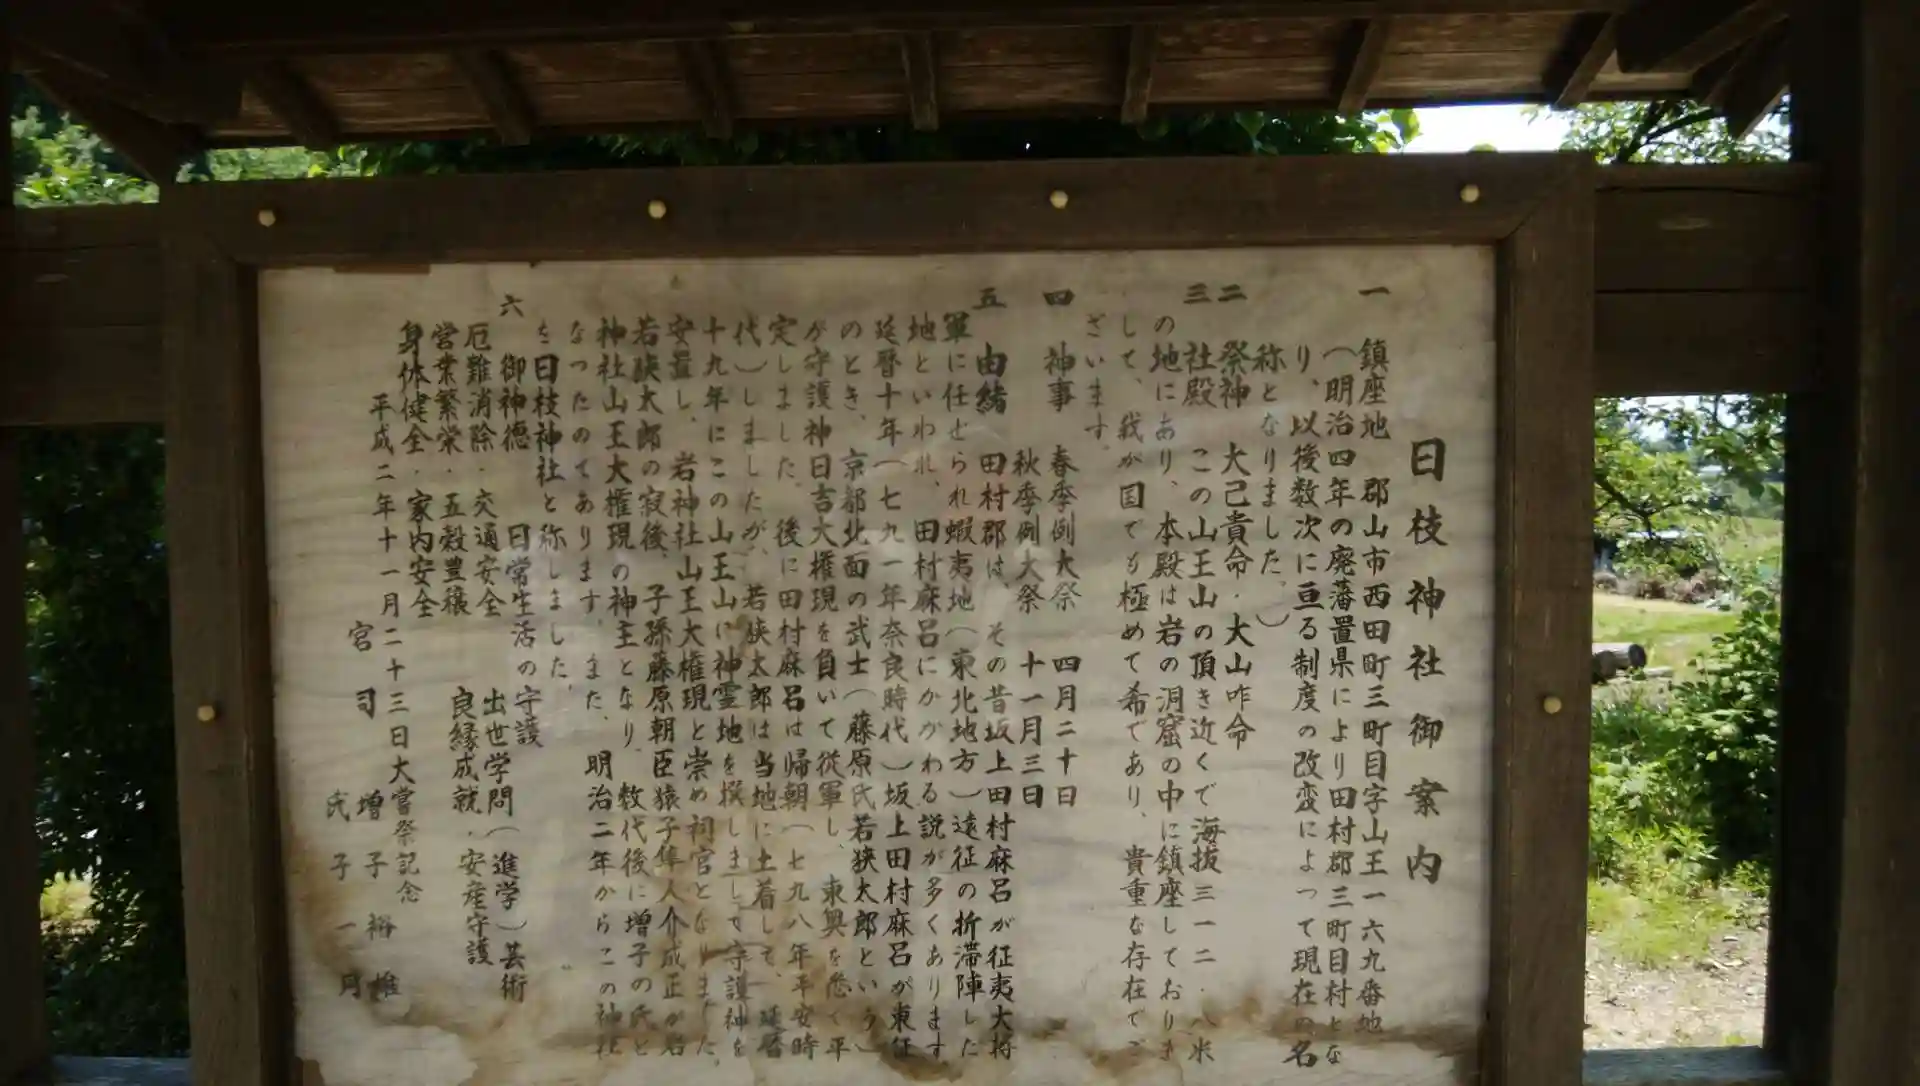 日枝神社御案内
一 鎮座地 郡山市西田町三町目字山王一六九番地
(明治四年の廃藩置県により田村郡三町目村とな
り、以後数次に亘る制度の改変によって現在の名
称となりました。)
二 祭神 大己貴命・大山咋命
三 社殿 この山王山の頂き近くで海抜三一二・八米
の地にあり、本殿は岩の洞窟の中に鎮座しておりま
して、我が国でも極めて希であり、貴重な存在でご
ざいます。
四 神事 春季例大祭 四月二十日
秋季例大祭 十一月三日
五 由緒 田村郡は、その昔坂上田村麻呂が征夷大将
軍に任ぜられ蝦夷地(東北地方)遠征の折滞陣した
地といわれ、田村麻呂にかかわる説が多くあります。
延暦十年(七九一年奈良時代)坂上田村麻呂が東征
のとき、京都北面の武士(藤原氏若狭太郎という)
が守護神日吉大権現を負いて従軍し、東奥を悉く平
定しました。後に田村麻呂は帰朝(七九八年平安時
代)しましたが、若狭太郎は当地に土着して、延暦
十九年にこの山王山に神霊地を撰しまして守護神を
安置し、岩神社山王大権現と崇め祠官となりました。
若狭太郎の寂後、子孫藤原朝臣猿子隼人介成正が岩
神社山王大権現の神主となり、数代後に増子の氏と
なったのであります。また、明治二年からこの神社
を日枝神社と称しました。
六 御神徳 日常生活の守護
厄難消除・交通安全 出世学問(進学)芸術
営業繁栄・五穀豊穣 良縁成就・安産守護
身体健全・家内安全
平成二年十一月二十三日大嘗祭記念
宮司 増子裕
氏子一同